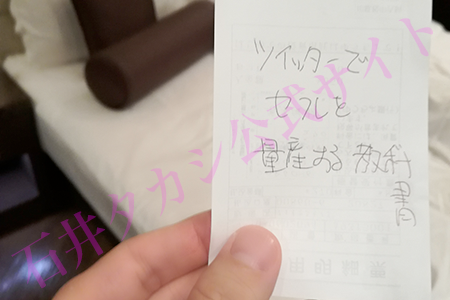 ツイッターで
セフレを
量産する教科
書
石井タカシ公式サイト